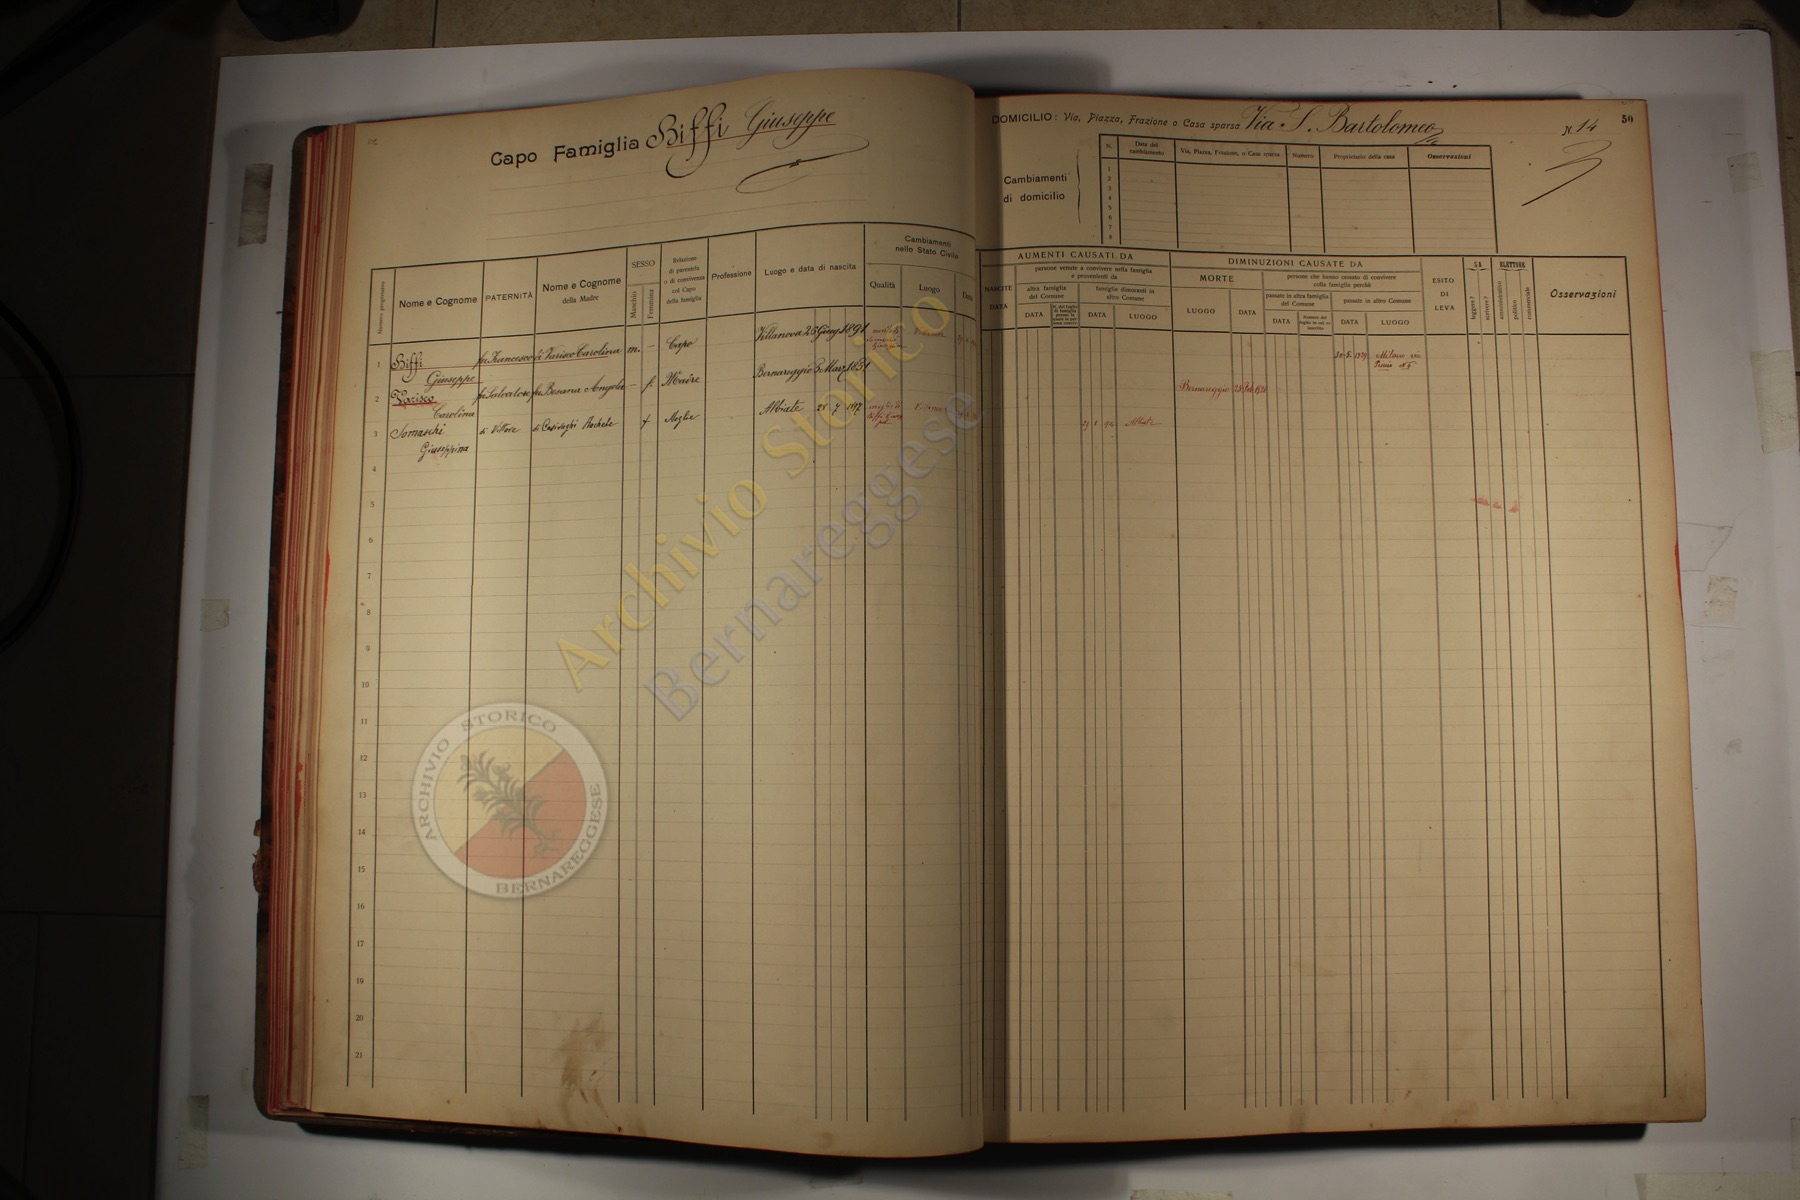 Capo Famiglia Biffi Giuseppe
DOMICILIO: Via, Piazza, Frazione o Casa sparsa Via S. Bartolomeo N. 14 50
3
Cambiamenti
di domicilio
N. Data del cambiamento Via, Piazza, Frazione, o Casa sparsa Numero Proprietario della casa Osservazioni
1
2
3
4
5
6
7
8
Numero progressivo
Nome e Cognome
PATERNITÀ
Nome e Cognome
della Madre
SESSO
Maschio
Femmina
Relazione
di parentela
o di convivenza
col Capo
della famiglia
Professione
Luogo e data di nascita
Cambiamenti
nello Stato Civile
Qualità Luogo Data
AUMENTI CAUSATI DA
NASCITE
DATA
persone venute a convivere nella famiglia
e provenienti da
altra famiglia
del Comune
DATA
famiglie dimoranti in
altro Comune
DATA LUOGO
DIMINUZIONI CAUSATE DA
MORTE
LUOGO DATA
persone che hanno cessato di convivere
colla famiglia perchè
passate in altra famiglia
del Comune
DATA
passate in altro Comune
DATA LUOGO
ESITO
DI
LEVA
SA
leggere?
scrivere?
ELETTORE
amministrativo
politico
commerciale
Osservazioni
1 Biffi Giuseppe fu Francesco di Varisco Carolina m. – Capo Villanova 25 Giug 1891
Milano via
2 Varisco Carolina fu Salvatore fu Besana Angela – f. Madre Bernareggio 5 Marz 1851
Bernareggio
3 Somaschi Giuseppina di Vittore di Casiraghi Rachele f Moglie Albiate 28 7 1897
Albiate
4
5
6
7
8
9
10
11
12
13
14
15
16
17
18
19
20
21
Archivio Storico
Bernareggese
ARCHIVIO STORICO
BERNAREGGESE